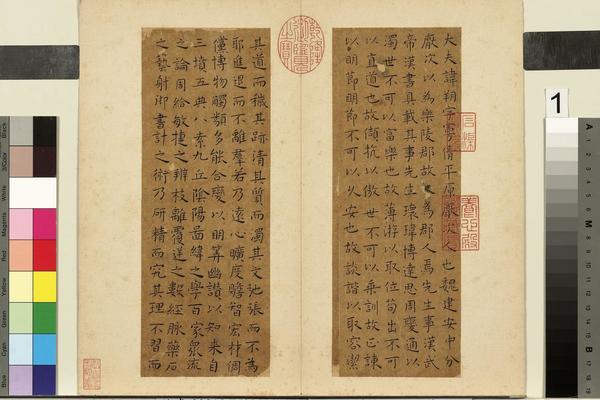 大夫諱朔字曼倩平原厭次人也魏建安中分
厭次以為樂陵郡故又為郡人焉先生事漢武
帝漢書具載其事先生瓌瑋博達思周變通以
濁世不可以富樂也故薄游以取位苟出不可
以直道也故頡抗以傲世不可以垂訓故正諫
以明節明節不可以久安也故談諧以取容潔
其道而穢其跡清其質而濁其文弛張而不為
耶進退而不離羣若乃遠心曠度瞻智宏材倜
儻博物觸類多能合變以明筭幽讚以知來自
三墳五典八索九丘陰陽圖緯之學百家眾流
之論周給敏捷之辨枝離覆逆之數經脉藥石
之藝射御書計之術乃研精而究其理不習而
乾隆御覽之寶
1
Black
3/Color
White
Magenta
Red
Yellow
Green
Cyan
Blue
A
M
B